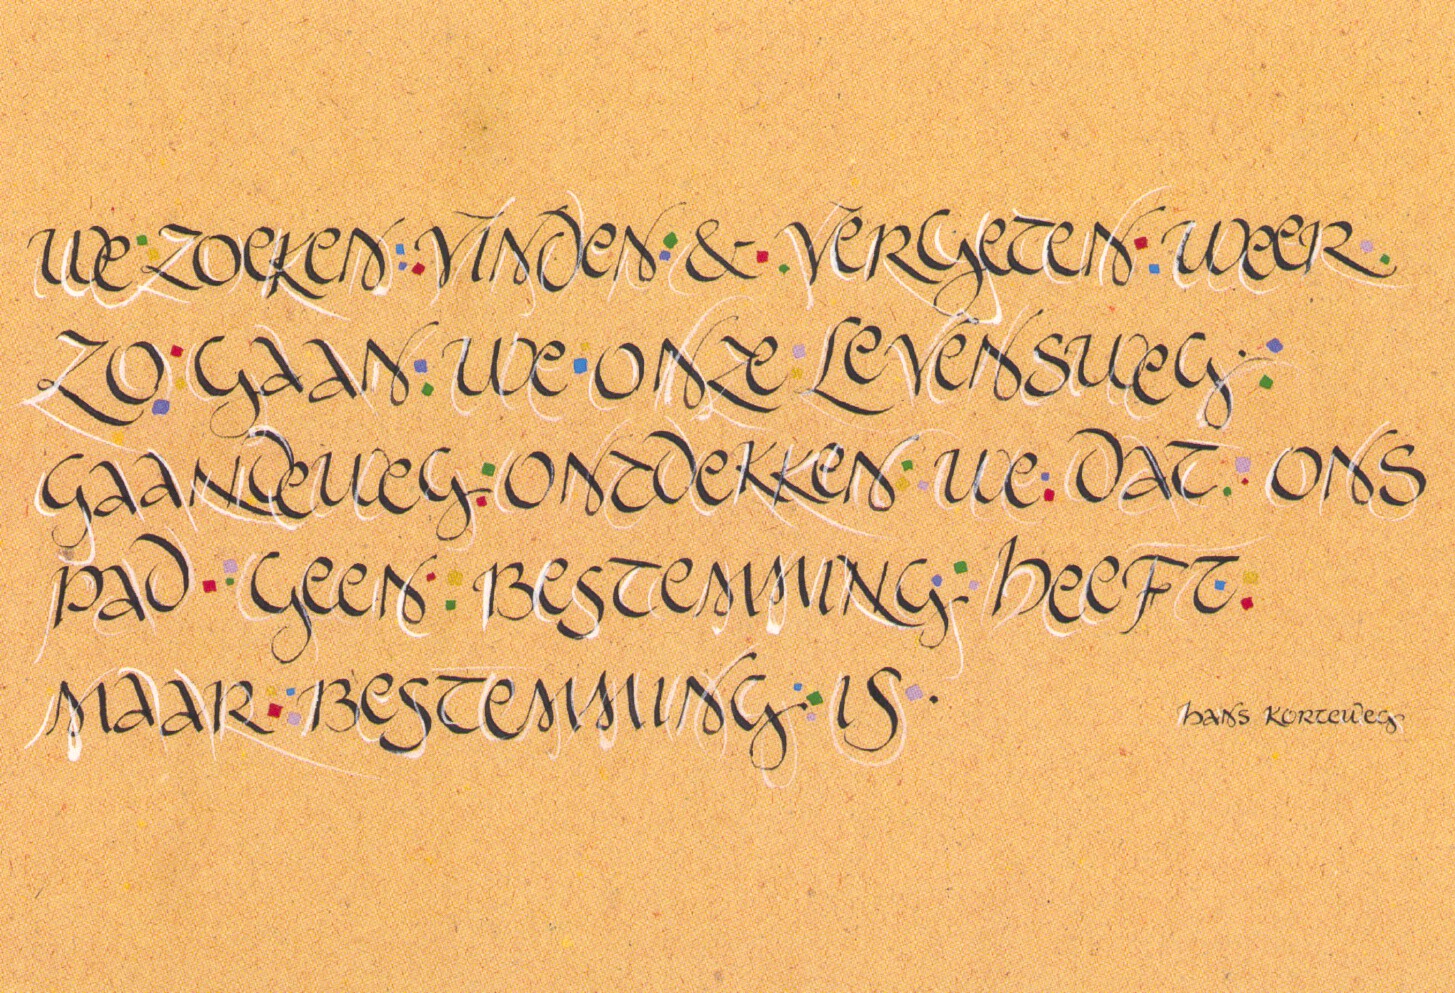 we zoeken vinden & vergeten weer
zo gaan we onze levensweg
gaandeweg ontdekken we dat ons
pad geen bestemming heeft
maar bestemming is.
hans korteweg